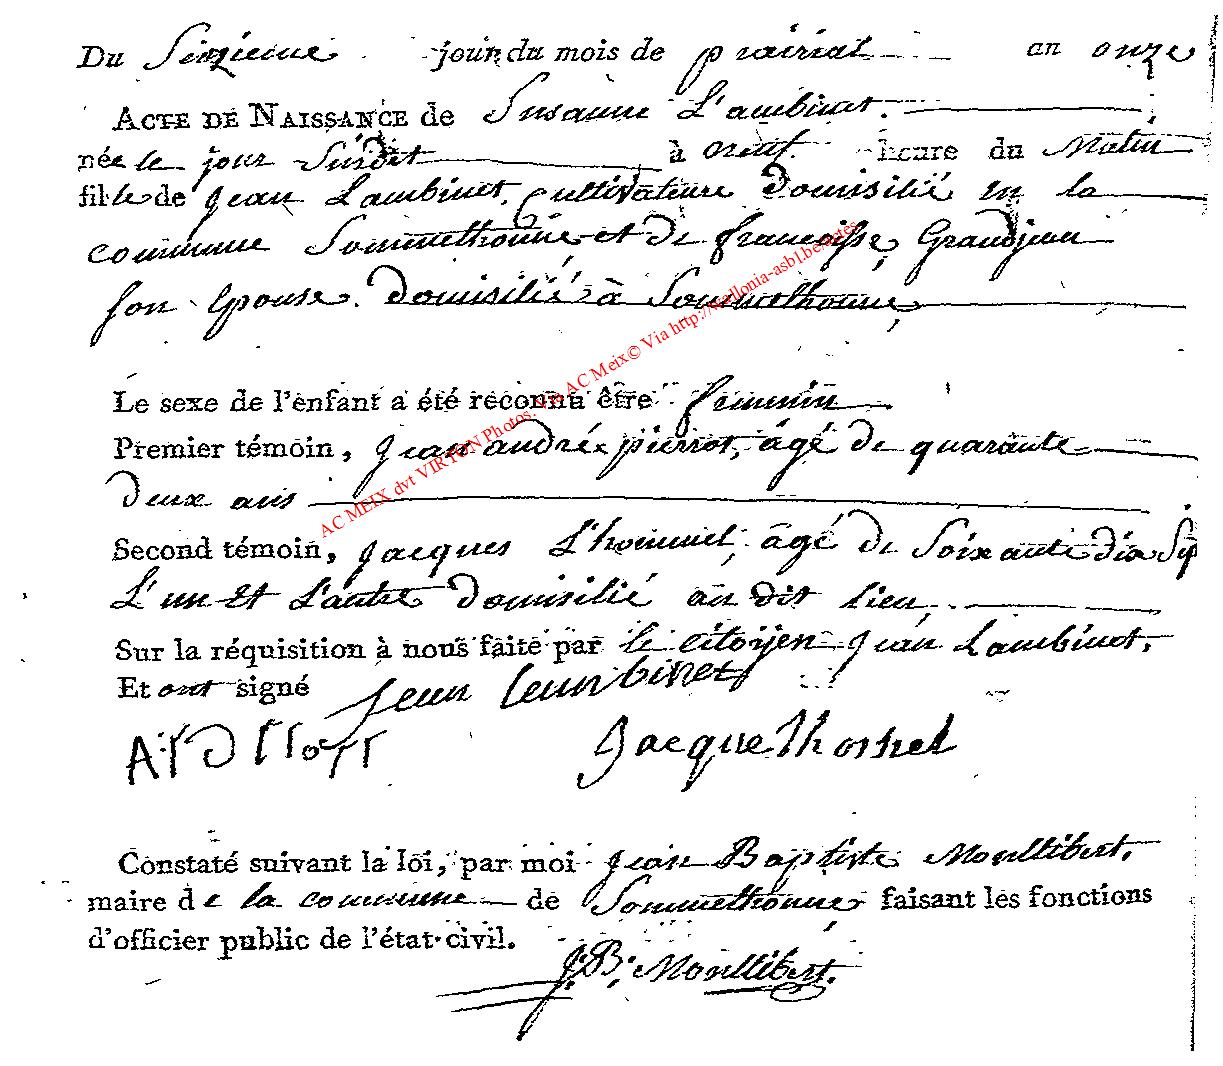 Du Seizieme jour du mois de prairial an onze
ACTE DE NAISSANCE de Susanne Lambinet.
née le jour Susdit à neuf heure du Matin
fille de jean Lambinet, cultivateure domisilié en la
commune Sommethonne et de francoisse Grandjean
son Epouse. domisilié à Sommethonne,
Le sexe de l'enfant a été reconnu être feminin
Premier témoin, jean andré pierrot, âgé de quarante
deux ans
Second témoin, jacques L'hommel, âgé de Soixante dix Sep
L'un Et L'autre domisilié au dit lieu
Sur la réquisition à nous faite par le citoyen jean Lambinet.
Et ont signé jean lambinet
jacque lhommel
Constaté suivant la loi, par moi jean Baptiste Monllibert.
maire de la commune de Sommethonne faisant les fonctions
d'officier public de l'état-civil.
J. B. Monllibert.
AC MEIX dvt VIRTON Photos. Via AC Meix© Via http://wallonia-asbl.be/actes